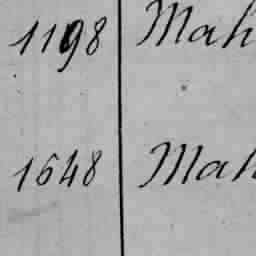 1198 Mah
1648 Mah